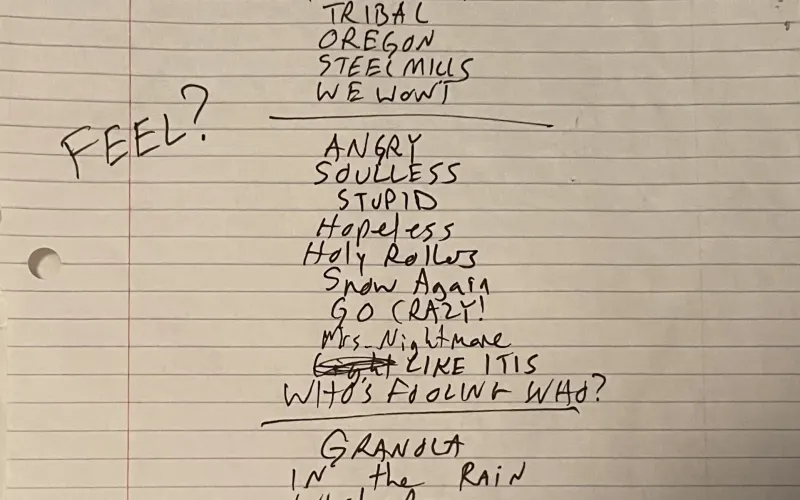 TRIBAL
OREGON
STEEL MILLS
WE WONT
FEEL?
ANGRY
SOULLESS
STUPID
Hopeless
Holy Rollers
Snow Again
GO CRAZY!
Mrs. Nightmare
LIKE IT IS
WHO'S FOOLING WHO?
GRANOLA
IN the RAIN